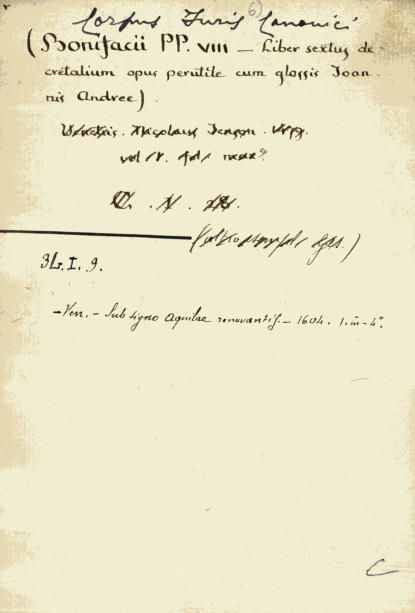 Corpus Juris Canonici
6)
(Bonifacii PP. VIII — Liber sextus de-
cretalium opus perutile cum glossis Joan-
nis Andree).
Venetiis. Nicolaus Jenson.
vol IV. fol.
36.I.9.
— Ven. — Sub signo Aquilae renovantis. — 1604. 1. in-4°.
C